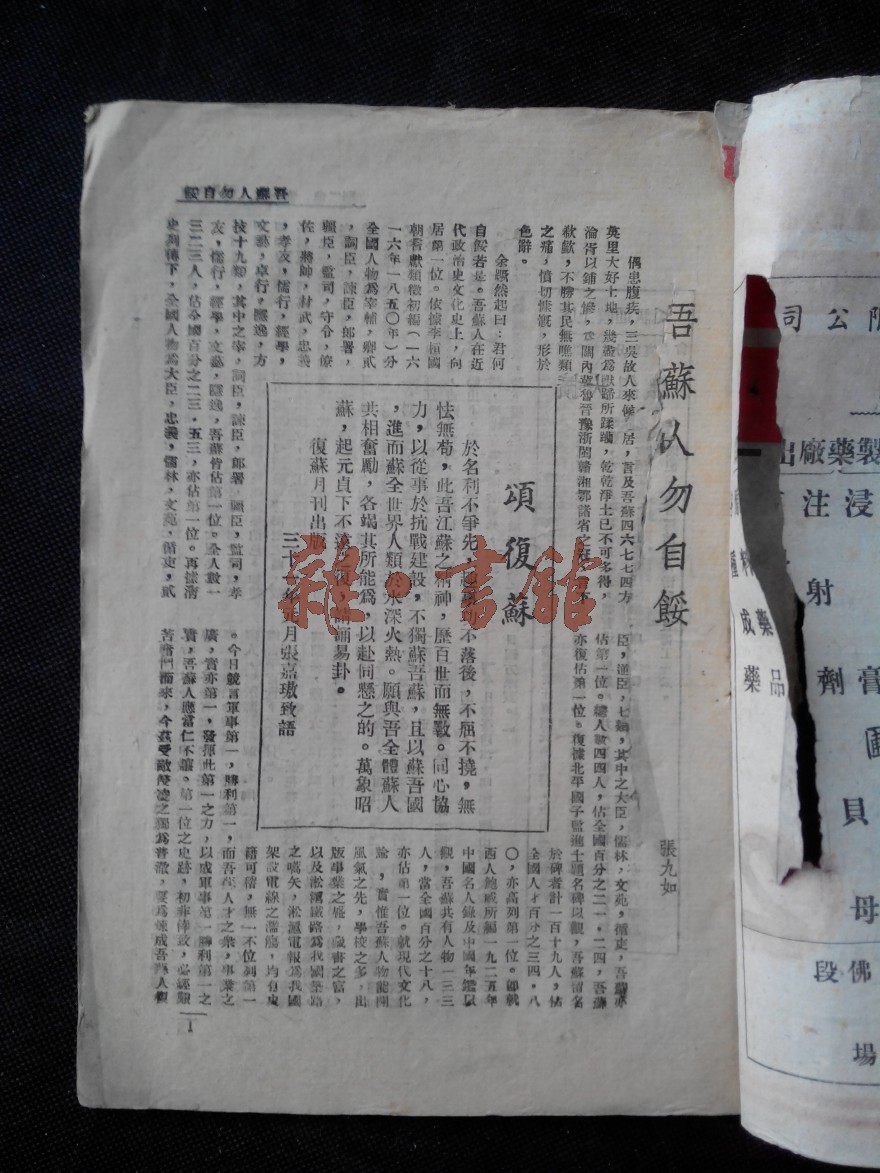 吾蘇人勿自餒
吾蘇人勿自餒
張九如
偶患腹疾，三吳故人來候
居，言及吾蘇四六七七四方
英里大好土地，幾盡爲獸蹄所蹂躪，乾乾淨土已不可多得，
淪胥以鋪之慘，
歔欷，不勝其民無噍類
之痛，憤切慷慨，形於
色辭。
余慨然起曰：君何
自餒若是。吾蘇人在近
代政治史文化史上，向
居第一位。依據李桓國
朝耆獻類徵初編（一六
一六年一八五〇年）分
全國人物爲宰輔，卿貳
，詞臣，諫臣，郎署，
疆臣，監司，守令，僚
佐，將帥，材武，忠義
，孝友，儒行，經學，
文藝，卓行，隱逸，方
技十九類，其中之宰，詞臣，諫臣，郎署，疆臣，監司，孝
友，儒行，經學，文藝，隱逸，吾蘇皆佔第一位。全人數一
三二三人，佔全國百分之二三．五三，亦佔第一位。再據清
史列傳下，全國人物爲大臣，忠義，儒林，文苑，循吏，貳
臣，逆臣，七類，其中之大臣，儒林，文苑，循吏，吾蘇亦
佔第一位。總人數四四人，佔全國百分之二一．二四，吾蘇
亦復佔第一位。復據北平國子監進士題名碑以觀，吾蘇留名
於碑者計一百十九人，佔
全國人才百分之三四．八
〇，亦高列第一位。卽就
西人鮑威所編一九二五年
中國名人錄及中國年鑑以
觀，吾蘇共有人物一三三
人，當全國百分之十八，
亦佔第一位。就現代文化
論，實惟吾蘇人物能開
風氣之先，學校之多，出
版事業之盛，藏書之富，
以及淞滬鐵路爲我國築路
之嚆矢，淞滬電報爲我國
架設電線之濫觴，均有史
籍可稽，無一不位列第一
。今日競言軍事第一，勝利第一，而吾蘇人才之衆，事業之
廣，實亦第一，發揮此第一之力，以成軍事第一勝利第一之
實，吾蘇人應當仁不讓。第一位之史跡，初非倖致，必經艱
苦奮鬥而來，
頌復蘇
於名利不爭先，
不落後，不屈不撓，無
怯無茍，此吾江蘇之精神，歷百世而無斁。同心協
力，以從事於抗戰建設，不獨蘇吾蘇，且以蘇吾國
，進而蘇全世界人類於水深火熱。願與吾全體蘇人
共相奮勵，各竭其所能爲，以赴同懸之的。萬象昭
蘇，起元貞下不遠之復，
易卦。
復蘇月刊出版
三十一年
月張嘉璈致語
1
雜·書館
限公司
製藥廠出
浸注
射
膏劑
藥品
成藥
貝
母
佛段
場